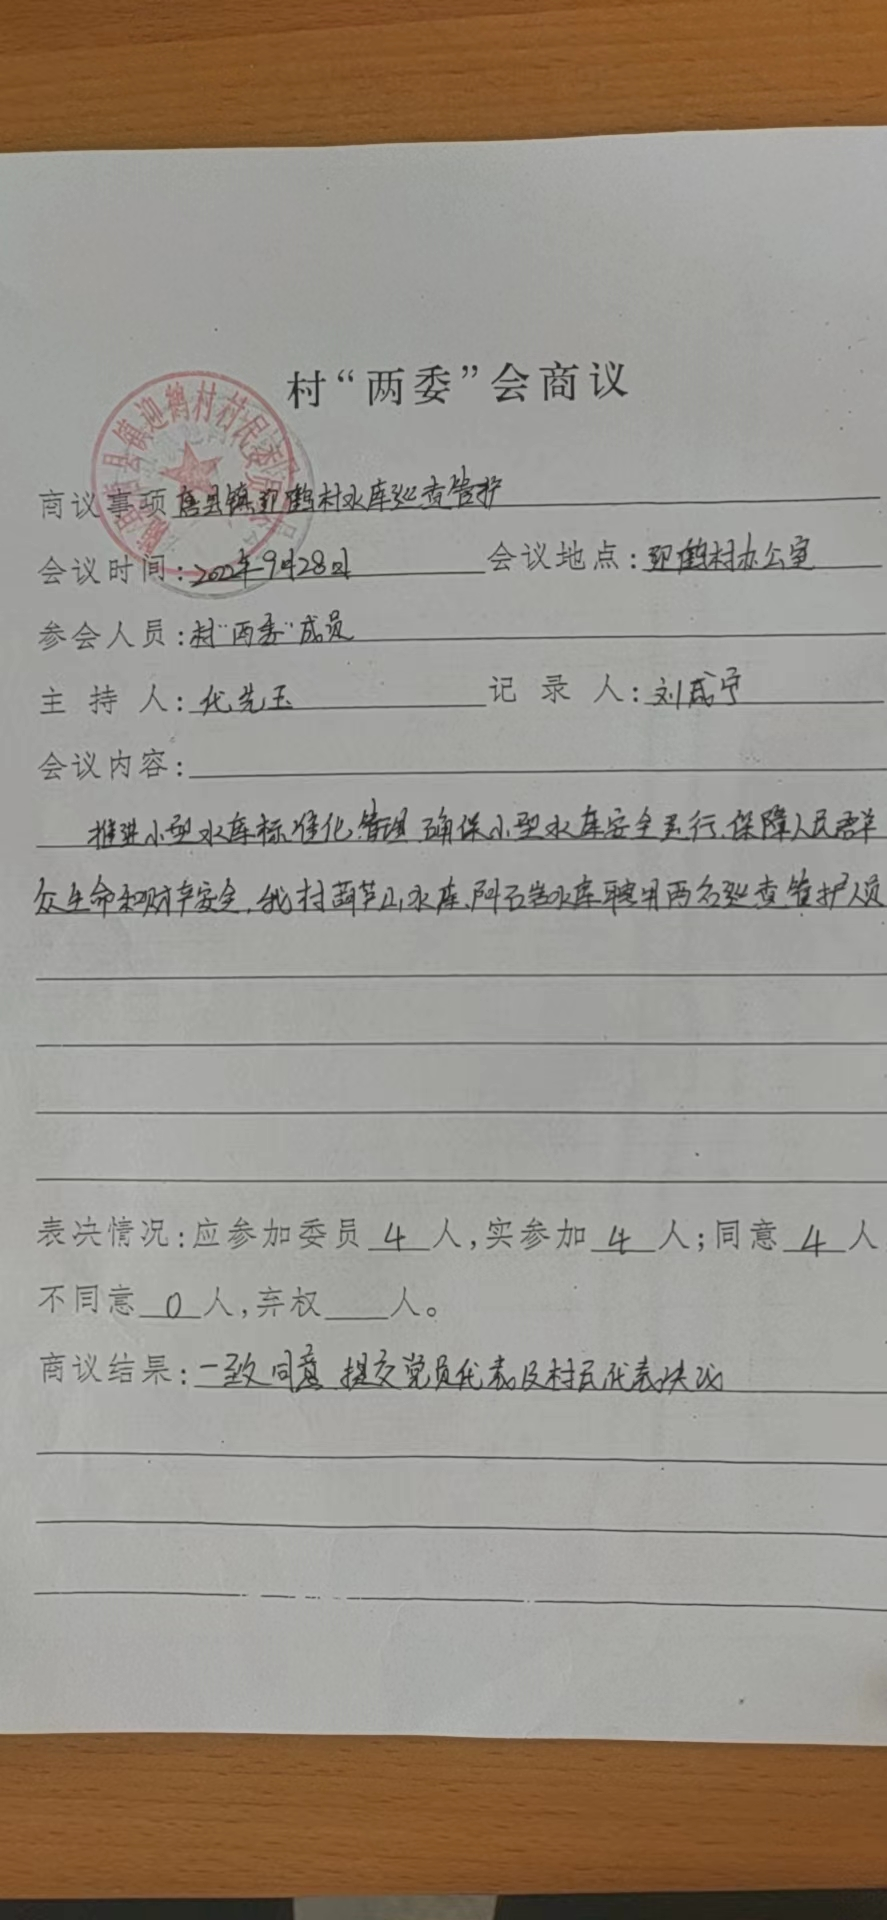 村“两委”会商议
商议事项 唐县镇迎鹤村水库巡查管护
会议时间：2022年9月28日 会议地点：迎鹤村办公室
参会人员：村“两委”成员
主持人：代先玉 记录人：刘成宁
会议内容：
推进小型水库标准化管理，确保小型水库安全运行，保障人民群
众生命和财产安全，我村葫芦山水库、阿石岩水库聘用两名巡查管护人员
表决情况：应参加委员 4 人，实参加 4 人；同意 4 人
不同意 0 人，弃权 人。
商议结果：一致同意 提交党员代表及村民代表决议
县镇迎鹤村村民委员会